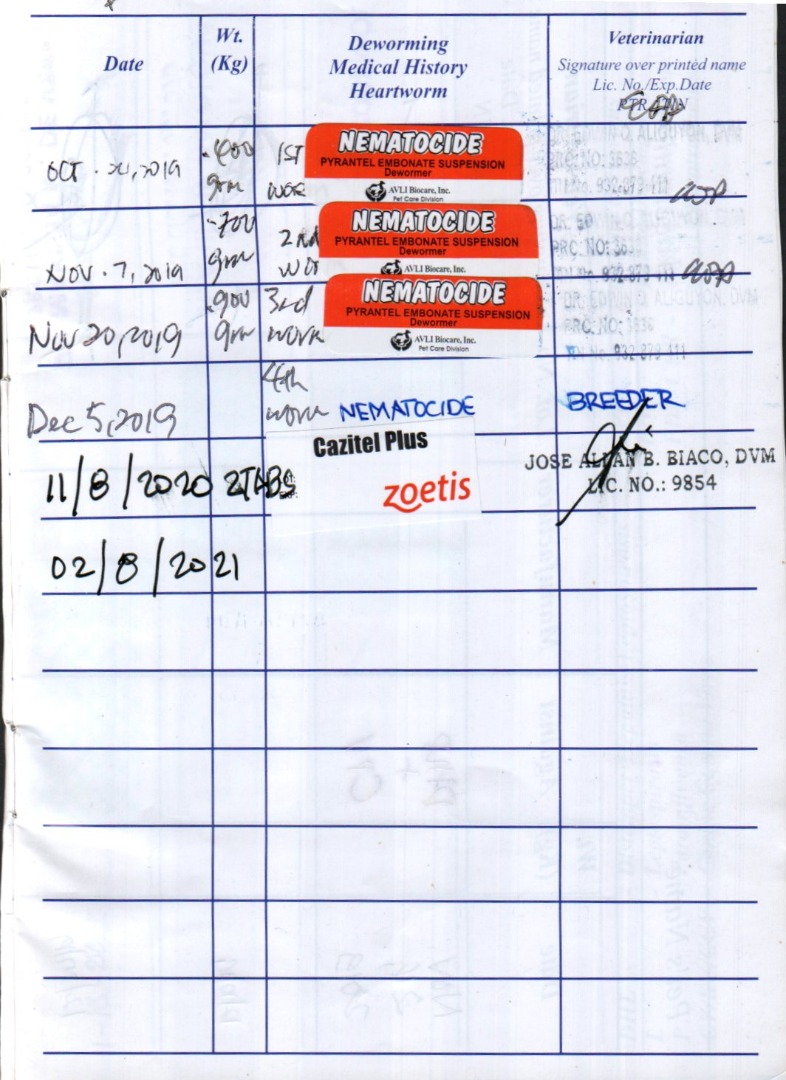 Date
Wt.
(Kg)
Deworming
Medical History
Heartworm
Veterinarian
Signature over printed name
Lic. No./Exp.Date
OCT . 24, 2019
.400
grm
1ST
WOR
NEMATOCIDE
PYRANTEL EMBONATE SUSPENSION
Dewormer
AVLI Biocare, Inc.
Pet Care Division
DR. EDWIN O. ALIGUYON, DVM
PRC. NO: 3636
932-879-111
NOV . 7, 2019
.700
grm
2ND
WO
NEMATOCIDE
PYRANTEL EMBONATE SUSPENSION
Dewormer
AVLI Biocare, Inc.
PRC. NO: 3636
932-879-111
Nov 20, 2019
.900
grm
3rd
worm
NEMATOCIDE
PYRANTEL EMBONATE SUSPENSION
Dewormer
AVLI Biocare, Inc.
Pet Care Division
DR. EDWIN O. ALIGUYON, DVM
932-879-111
Dec 5, 2019
4th
worm NEMATOCIDE
BREEDER
11/8/2020 2TABS
Cazitel Plus
zoetis
JOSE ALLAN B. BIACO, DVM
LIC. NO.: 9854
02/8/2021